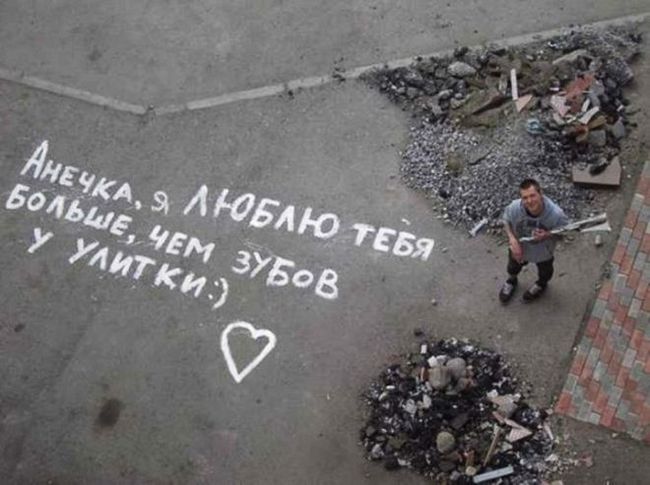 Анечка, я люблю тебя
больше, чем зубов
у улитки:)